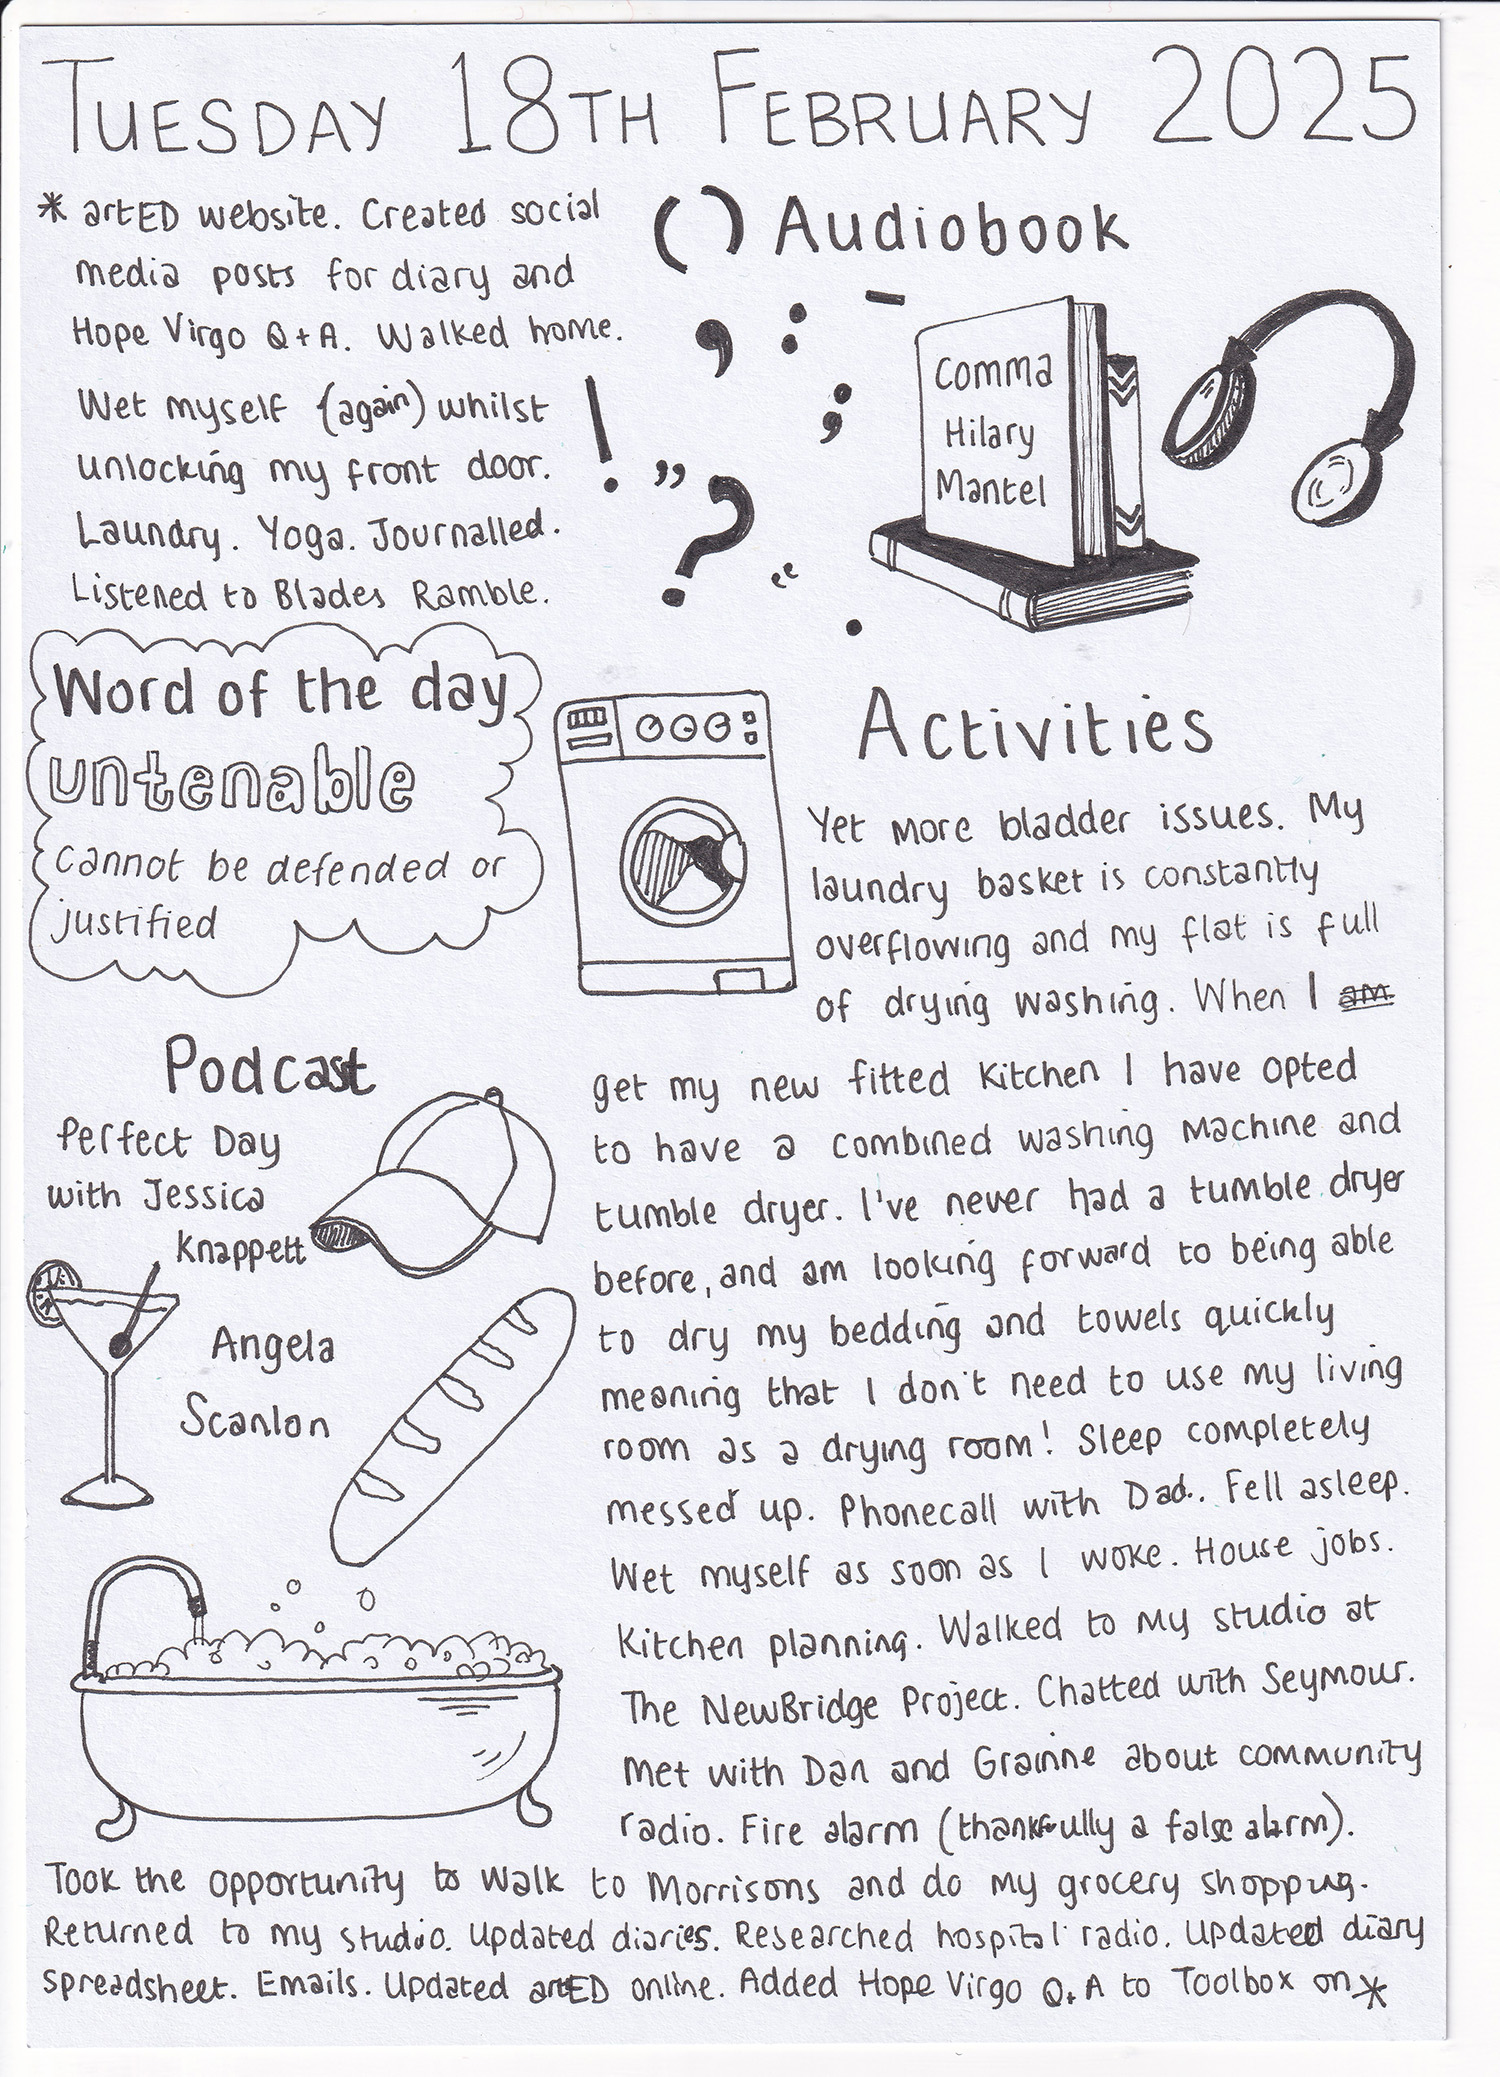 TUESDAY 18TH FEBRUARY 2025
* artED website. Created social
media posts for diary and
Hope Virgo Q+A. Walked home.
Wet myself (again) whilst
unlocking my front door.
Laundry. Yoga. Journalled.
Listened to Blades Ramble.
( ) Audiobook
, : -
;
! " ?
“ .
Comma
Hilary
Mantel
Word of the day
untenable
cannot be defended or
justified
Podcast
Perfect Day
with Jessica
Knappett
Angela
Scanlon
Activities
Yet more bladder issues. My
laundry basket is constantly
overflowing and my flat is full
of drying washing. When I am
get my new fitted kitchen I have opted
to have a combined washing machine and
tumble dryer. I've never had a tumble dryer
before, and am looking forward to being able
to dry my bedding and towels quickly
meaning that I don't need to use my living
room as a drying room! Sleep completely
messed up. Phonecall with Dad. Fell asleep.
Wet myself as soon as I woke. House jobs.
Kitchen planning. Walked to my studio at
The NewBridge Project. Chatted with Seymour.
Met with Dan and Grainne about community
radio. Fire alarm (thankfully a false alarm).
Took the opportunity to walk to Morrisons and do my grocery shopping.
Returned to my studio. Updated diaries. Researched hospital radio. Updated diary
spreadsheet. Emails. Updated artED online. Added Hope Virgo Q+A to Toolbox on *